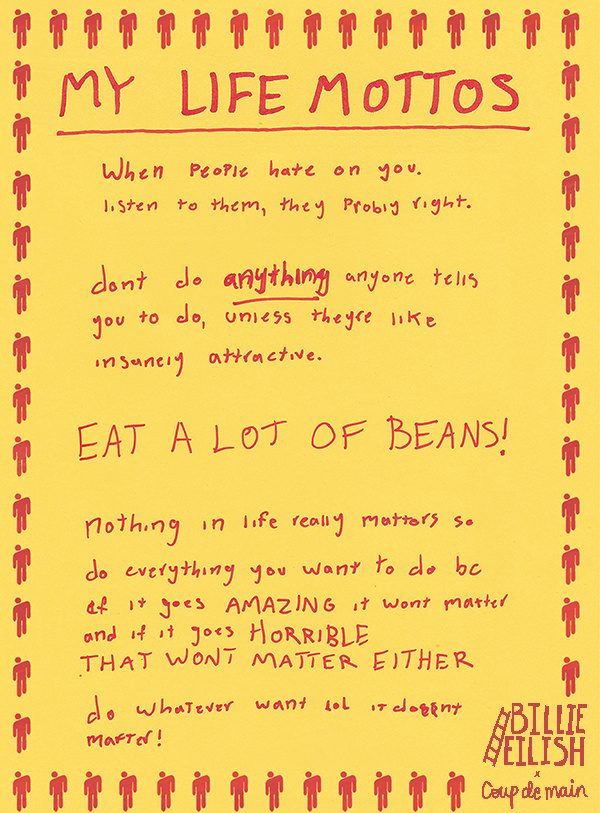 MY LIFE MOTTOS
When people hate on you.
listen to them, they probly right.
dont do anything anyone tells
you to do, unless theyre like
insanely attractive.
EAT A LOT OF BEANS!
nothing in life really matters so
do everything you want to do bc
if it goes AMAZING it wont matter
and if it goes HORRIBLE
THAT WONT MATTER EITHER
do whatever want lol it doesnt
matter!
BILLIE
EILISH
x
Coup de main